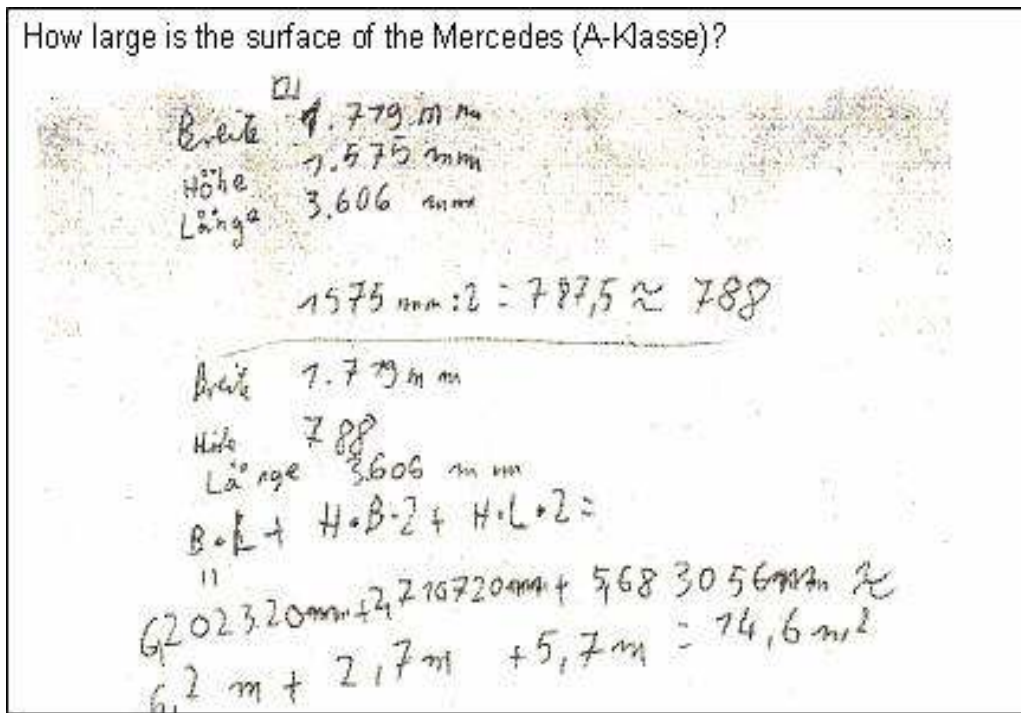 How large is the surface of the Mercedes (A-Klasse)?
Breite 1.719 mm
Höhe 1.575 mm
Länge 3.606 mm
1575 mm : 2 = 787,5 ≈ 788
Breite 1.719 mm
Höhe 788
Länge 3606 mm
B•L + H•B•2 + H•L•2 =
"
6,202320mm + 2,710720mm + 5,683056mm ≈
6,2 m + 2,7m + 5,7m = 14,6 m²